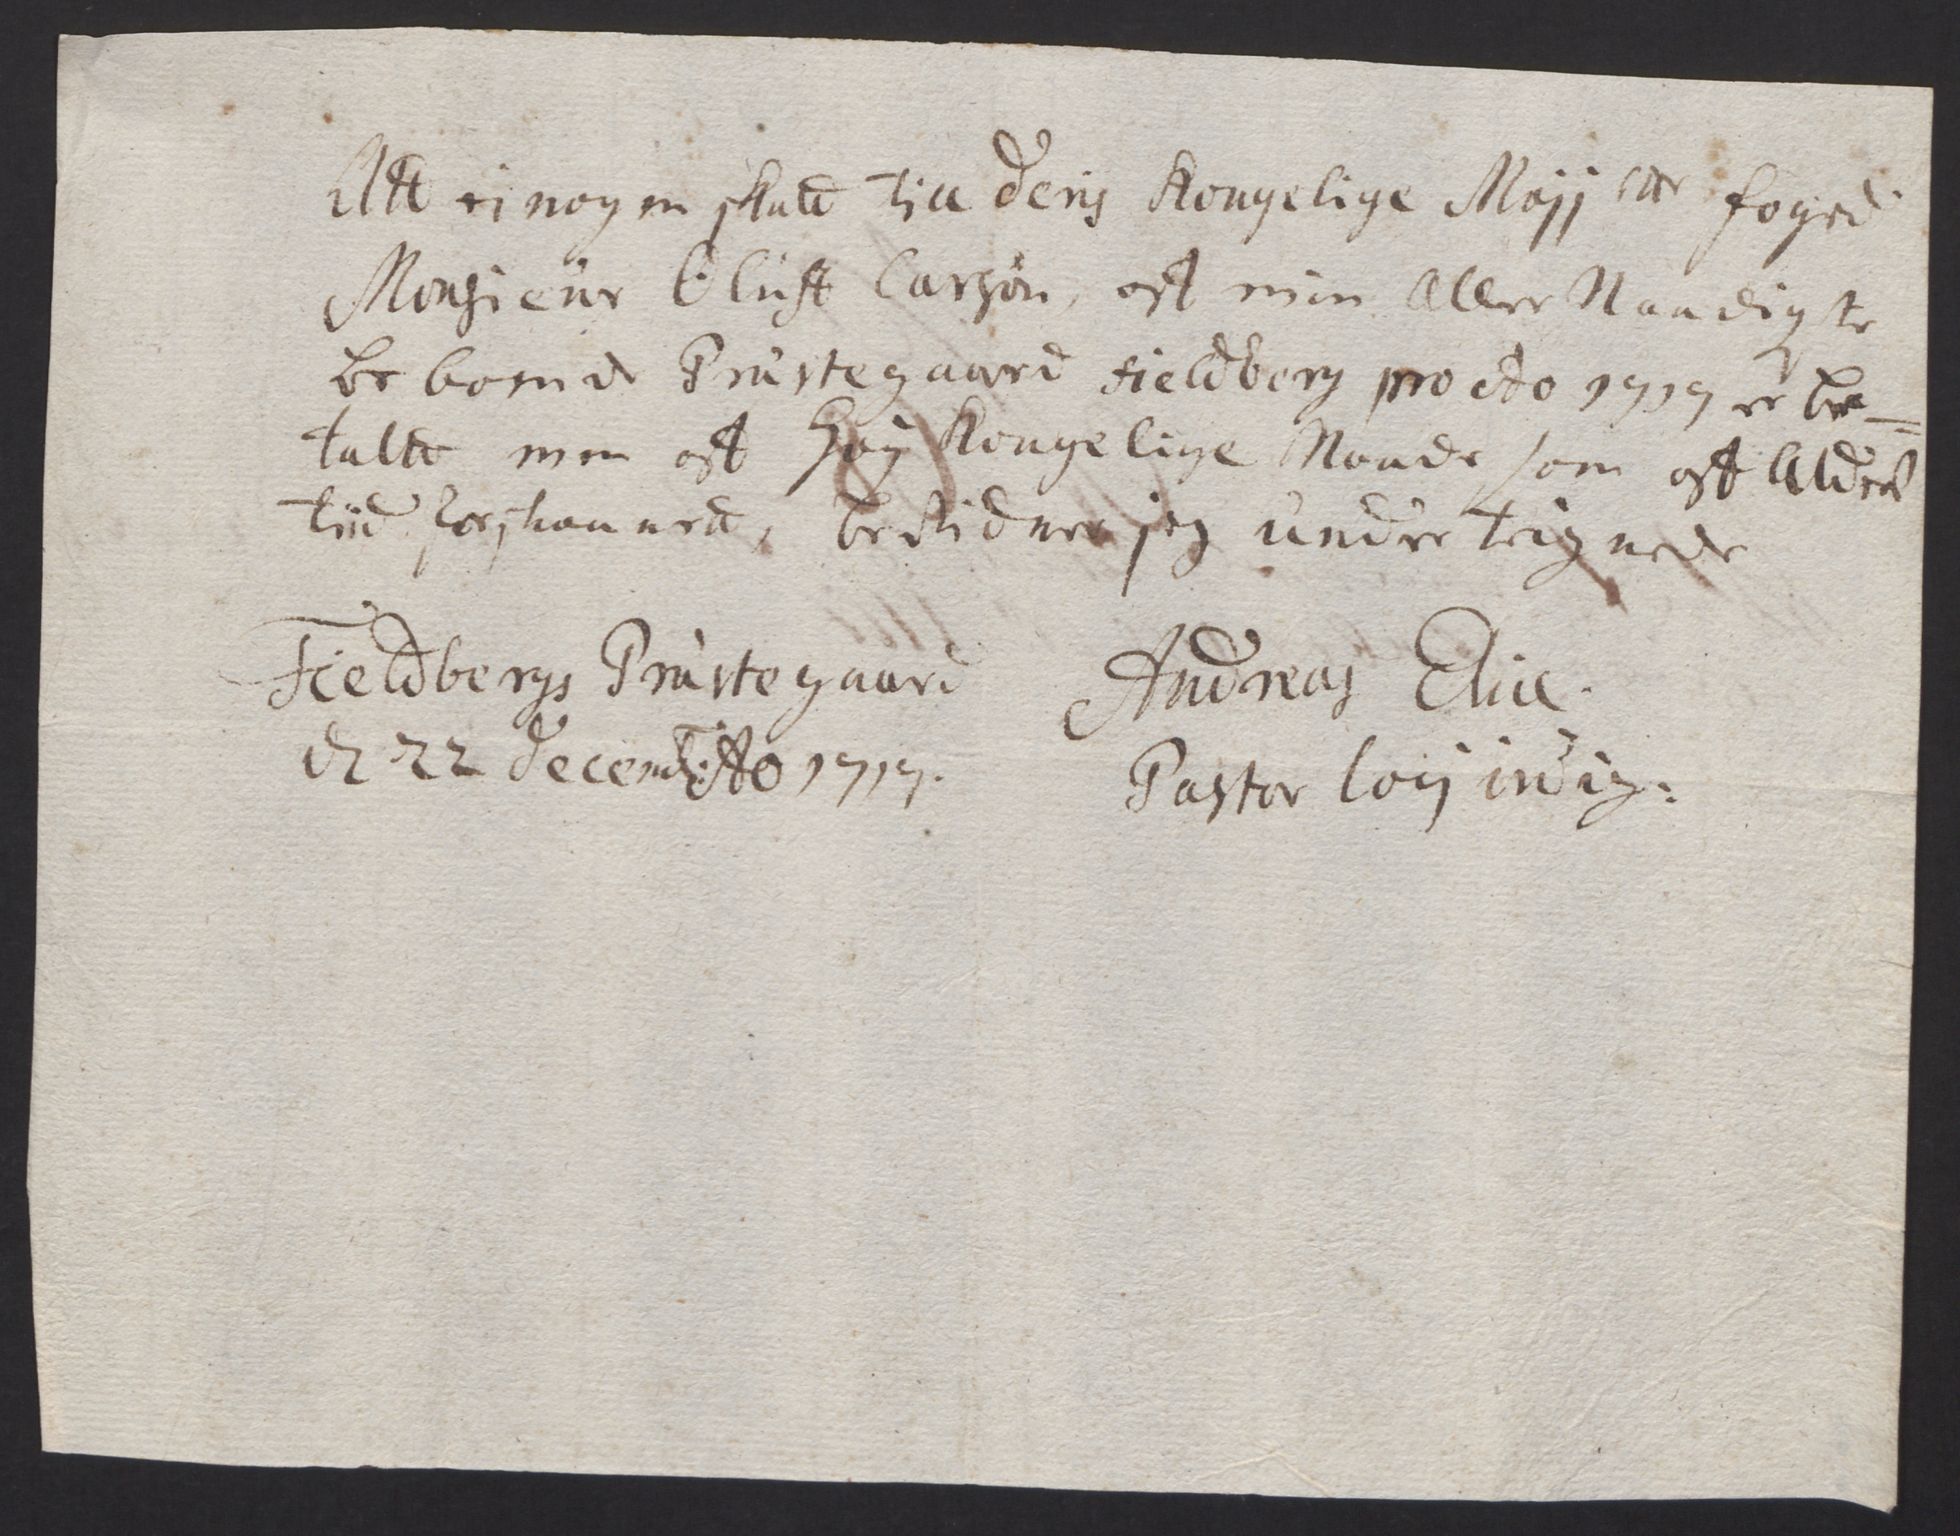 Att ei nogen skatt till Deris Kongelige Majjtt foged
Monsieur Oluff Larsøn, aff min Aller Naadigste
be boende Præstegaard Fieldberg pro Ao 1717 er be=
taltt men aff Høy Kongelige Naade som aff Alder
tiid forskaanett, bestidner jeg undertegnede
Fieldbergs Præstegaard
d 22 Decemb: Ao 1717.
Andreas Eliæ.
Pastor loci indig: